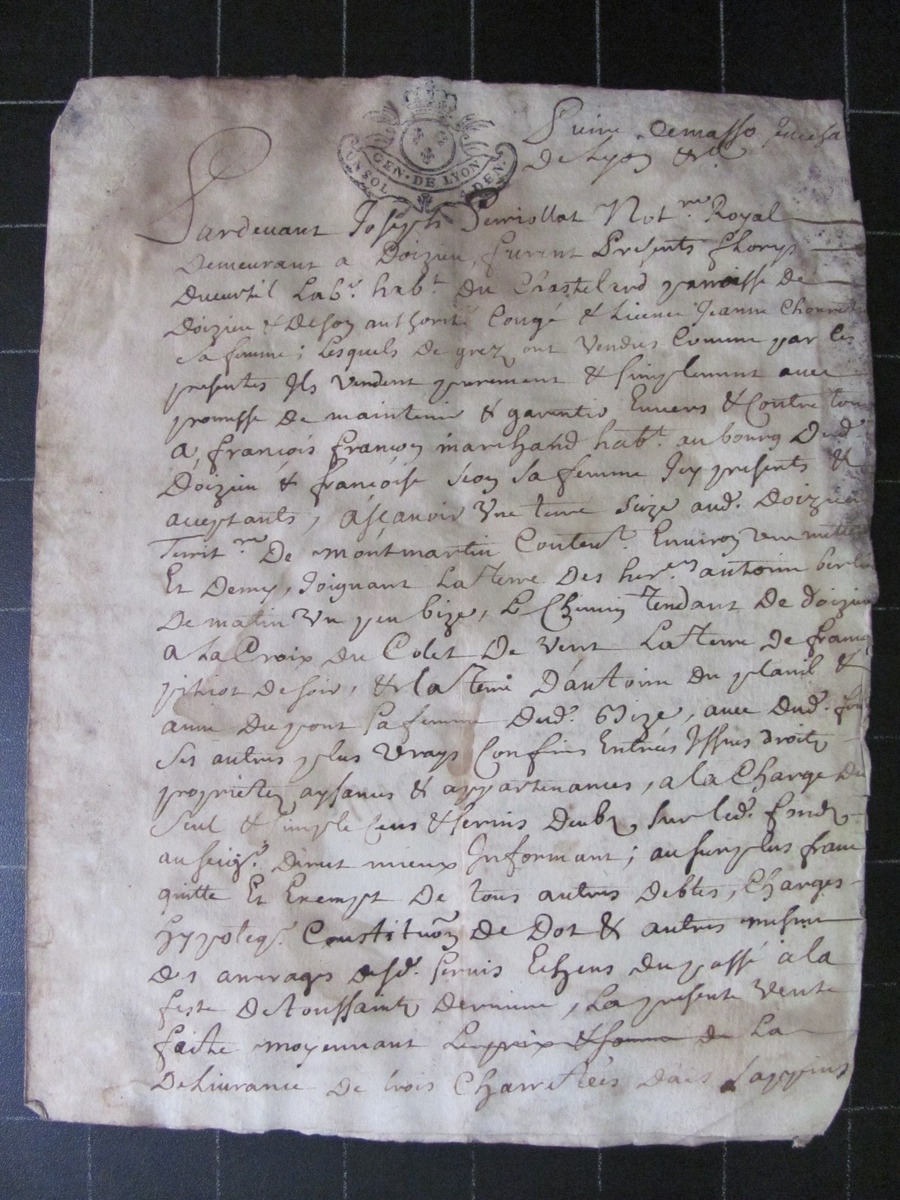 GEN. DE LYON
ON SOL DEN.
de Lyon &c
Pardevant Joseph Perriollat Not.re Royal
Demeurant a Doizieu, furent Presents fleury
Labr. habt. du Chastelard parroisse de
Doizieu & de son authorité Congé & Licence Jeanne
sa femme; Lesquels de grez ont vendus Comme par les
presentes Ils vendent purement & simplement avec
promesse de maintenir & garentir Envers & Contre tous
A, françois françon marchand habt. au bourg Dud.
Doizieu & françoise sa femme Icy presents &
acceptants, ascavoir Une terre Size aud. Doizieu
Territ.re De montmartin Conten.t Environ
Et Demy, Joignant La terre Des her.ers antoine
De matin Un peu bize, Le Chemin tendant De doizieu
A La Croix du Colet De Vent La terre de
De soir, & La terre D'antoine du planil &
anne Dupont sa femme Dud. Bize, avec Dud. fond
Ses autres plus vrays Confins Entrées Issues droits
proprietez aysances & appartenances, a la Charge du
seul & simple Cens & servis Deubz sur led. fondz
au seig.r Direct mieux Informant; au surplus franc
quitte Et Exempt De tous autres debtes, Charges
hypoteq.s Constituon de Dot & autres mesme
des arrerages desd. servis Echeus du passé a la
feste De toussaintz Derniere, La presente Vente
faite moyennant Le prix & somme de La
Delivrance de trois Charretées d'ais sappins